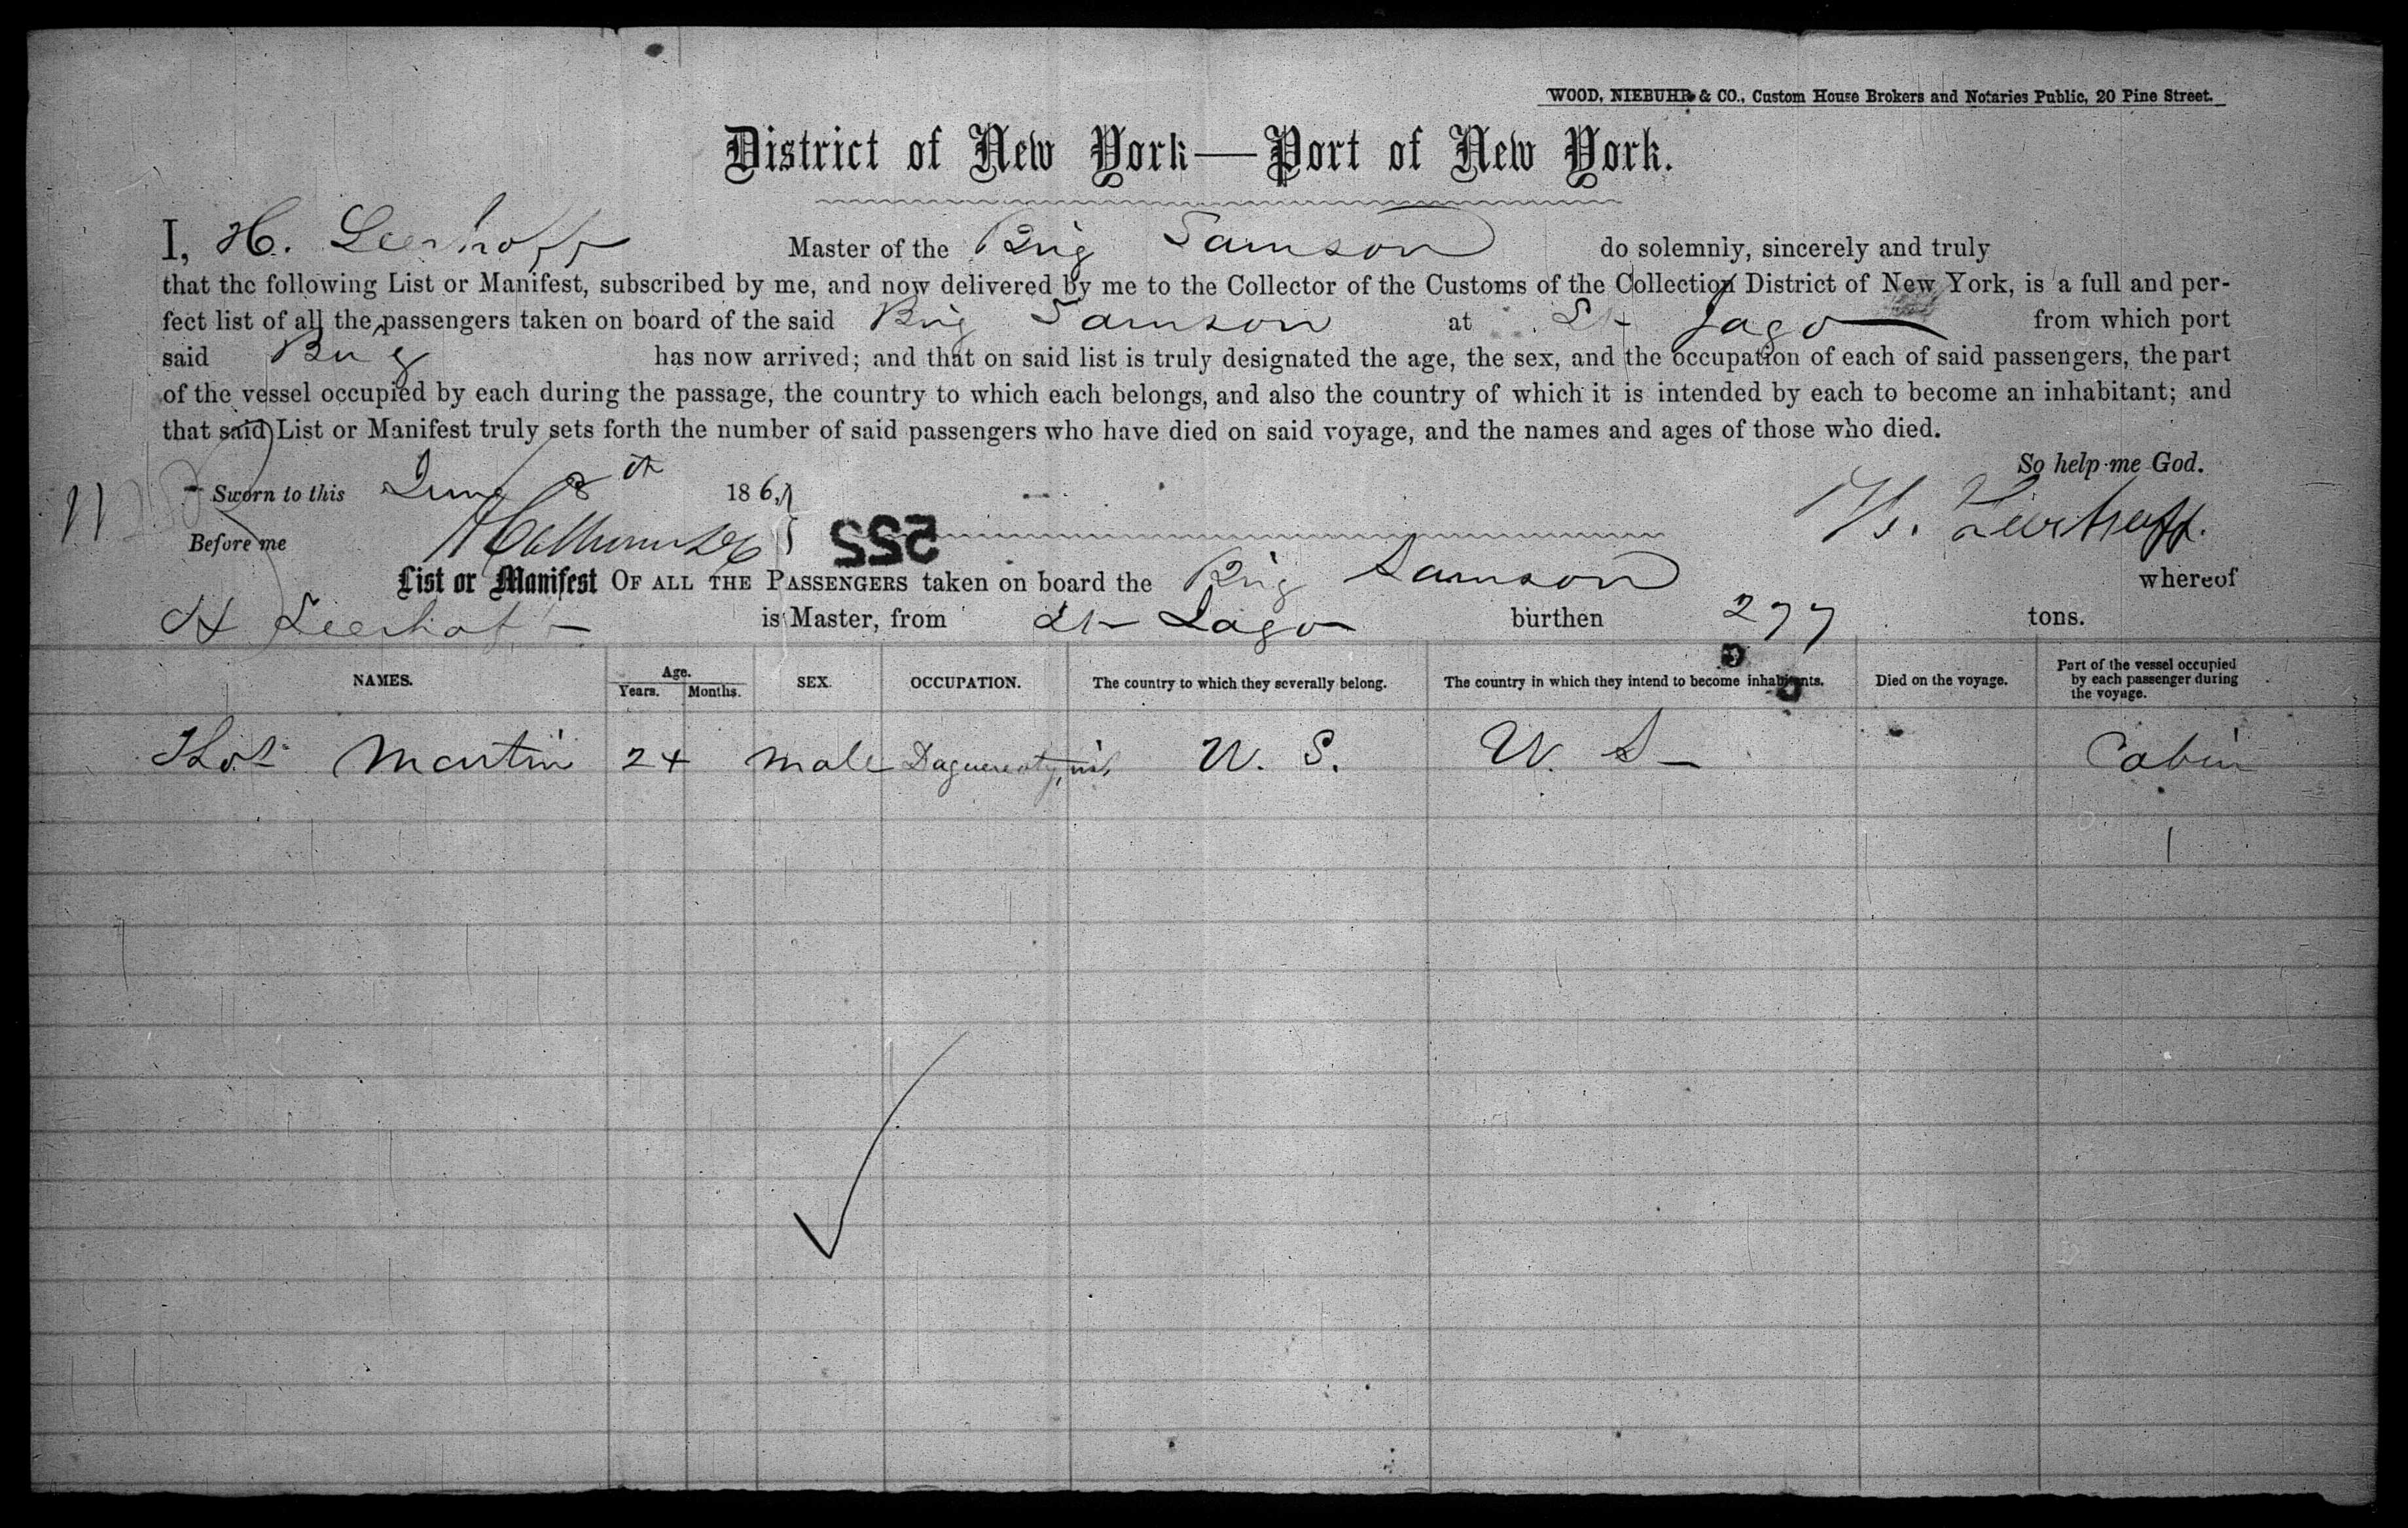 WOOD, NIEBUHR & CO., Custom House Brokers and Notaries Public, 20 Pine Street.
District of New York—Port of New York.
I, H. Leerhoff Master of the Brig Samson do solemnly, sincerely and truly
that the following List or Manifest, subscribed by me, and now delivered by me to the Collector of the Customs of the Collection District of New York, is a full and per-
fect list of all the passengers taken on board of the said Brig Samson at St Jago from which port
said Brig has now arrived; and that on said list is truly designated the age, the sex, and the occupation of each of said passengers, the part
of the vessel occupied by each during the passage, the country to which each belongs, and also the country of which it is intended by each to become an inhabitant; and
that said List or Manifest truly sets forth the number of said passengers who have died on said voyage, and the names and ages of those who died.
So help me God.
Sworn to this June 8th 186
Before me H. Leerhoff.
522
List or Manifest OF ALL THE PASSENGERS taken on board the Brig Samson whereof
H Leerhoff is Master, from St Jago birthen 277 tons.
NAMES. Age. Years. Months. SEX. OCCUPATION. The country to which they severally belong. The country in which they intend to become inhabitants. Died on the voyage. Part of the vessel occupied by each passenger during the voyage.
Thos Martin 24 male Daguereotypist U. S. U. S Cabin
1